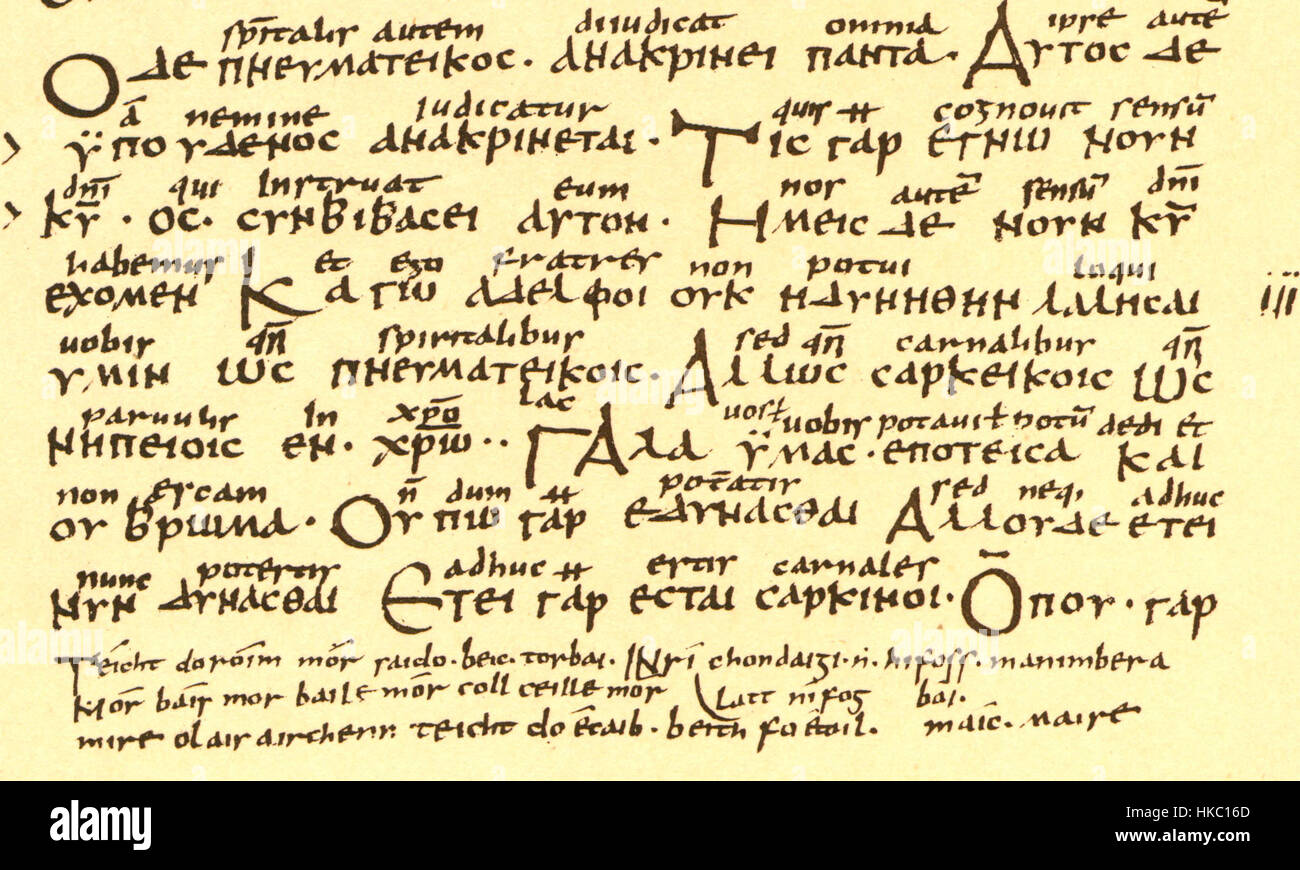 sp̄italis autem diiudicat omnia ipse autē
Ο ΔΕ ΠΝΕΥΜΑΤΕΙΚΟC· ΑΝΑΚΡΙΝΕΙ ΠΑΝΤΑ· ΑΥΤΟC ΔΕ
ā nemine iudicatur quis cognouit sensū
ΫΠΟΥΔΕΝΟC ΑΝΑΚΡΙΝΕΤΑΙ· ΤΙC ΓΑΡ ΕΓΝΩ ΝΟΥΝ
dn̄i qui instruat eum nos autē sensū dn̄i
ΚῩ· ΟC· CΥΝΒΙΒΑCΕΙ ΑΥΤΟΝ· ΗΜΕΙC ΔΕ ΝΟΥΝ ΚῩ
habemus et ego fratres non potui loqui
ΕΧΟΜΕΝ ΚΑΓΩ ΑΔΕΛΦΟΙ ΟΥΚ ΗΔΥΝΗΘΗΝ ΛΑΛΗCΑΙ
uobis qn̄ spiritalibus sed qn̄ carnalibus qn̄
ΥΜΙΝ ΩC ΠΝΕΥΜΑΤΕΙΚΟΙC· ΑΛΛΩC CΑΡΚΕΙΚΟΙC ΩC
paruulis in xp̄o lac uos ł uobis potaui ł potū dedi et
ΝΗΠΕΙΟΙC ΕΝ· ΧΡΩ̄·· ΓΑΛΑ ΫΜΑC· ΕΠΟΤΕΙCΑ ΚΑΙ
non escam n̄ dum potēatis sed neqi adhuc
ΟΥ ΒΡΩΜΑ· ΟΥΠΩ ΓΑΡ ΕΔΥΝΑCΘΑΙ ΑΛΛΟΥΔΕ ΕΤΕΙ
nunc potestis adhuc estis carnales
ΝΥΝ ΔΥΝΑCΘΑΙ ΕΤΕΙ ΓΑΡ ΕCΤΑΙ CΑΡΚΙΝΟΙ· ΟΠΟΥ· ΓΑΡ
Teicht doróim mór saido· bec· torbai· INrí chondaigi· n̄· hifoss· manimbera
Mór báis mor baile mór coll ceille mór latt nifog bai·
mire olair airchenn teicht doécaib· beith fóétoil· maic· maire
alamy
Image ID: HKC16D
www.alamy.com